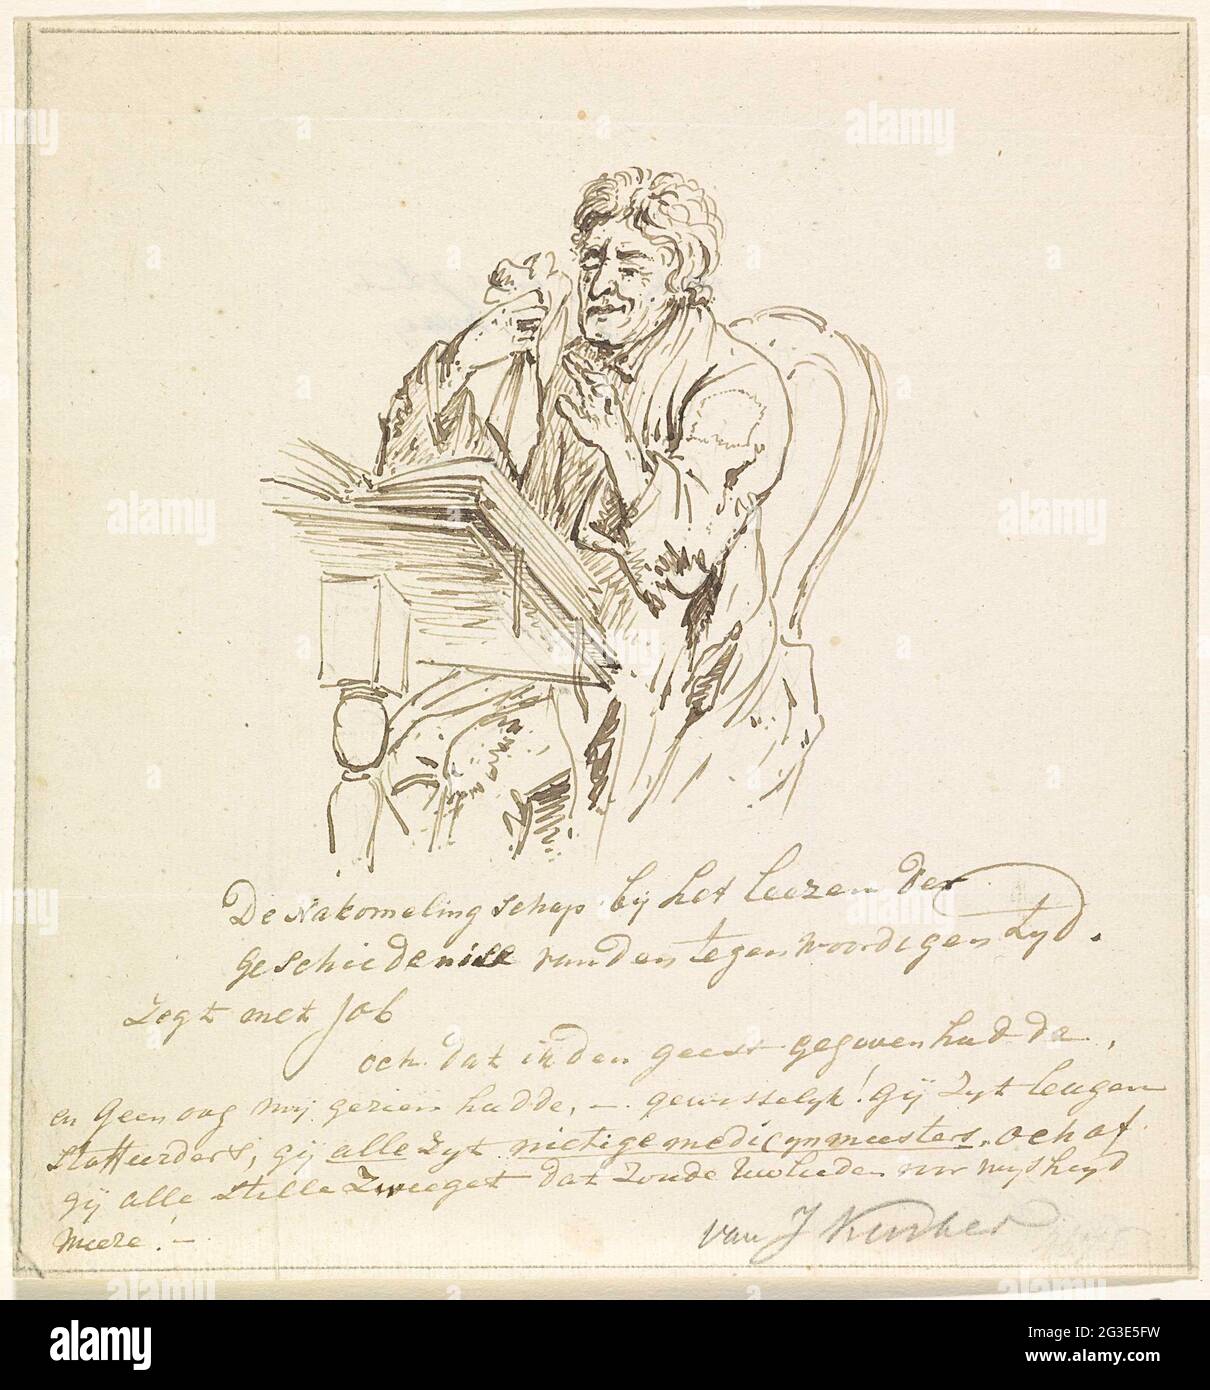 De Nakomeling schap bij het leezen der
geschiedenisse van den tegenwoordigen tyd.
Zegt met Job
och dat ik den geest gegeven hadde,
en geen oog mij gezien hadde, — gewisselyk! gij zyt leugen
stoffeerders, gij alle zyt nietige medicynmeesters. och of
gij alle stille zweeget dat zoude uwlieden voor wysheyd
weeze! —
van J
alamy
Image ID: 2G3E5FW
www.alamy.com